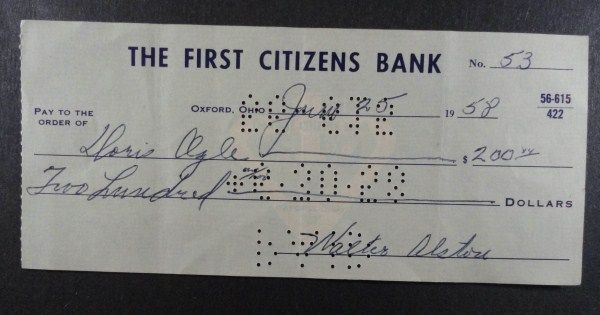 THE FIRST CITIZENS BANK No. 53
OXFORD, OHIO June 25 1958 56-615
422
PAY TO THE
ORDER OF Doris Ogle $ 200.00
Two hundred DOLLARS
Walter Alston